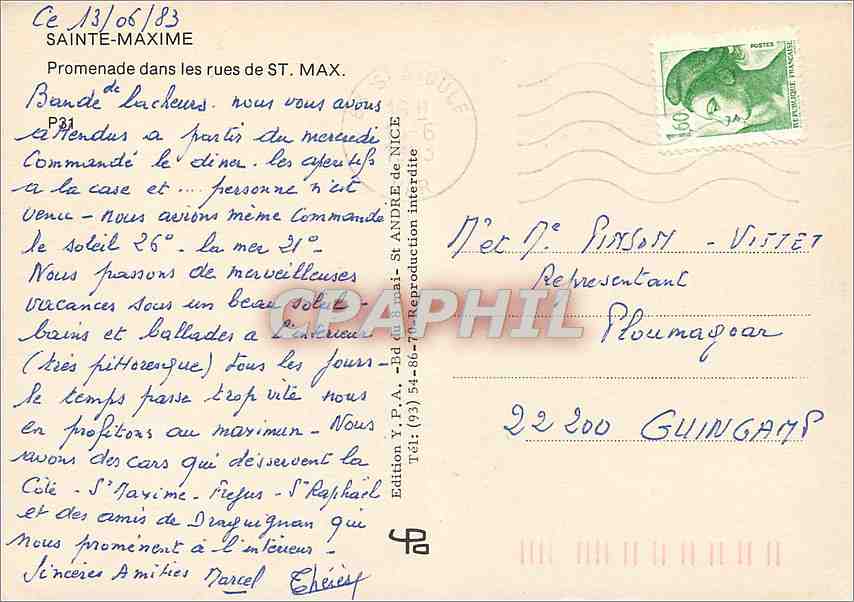 Ce 13/06/83
SAINTE-MAXIME
Promenade dans les rues de ST. MAX.
P31
Bande de lacheurs. nous vous avons
attendus a partir du mercredi
Commandé le diner. les aperitifs
a la case et ... personne n'est
venu - nous avions même Commandé
le soleil 26° - la mer 21° -
Nous passons de merveilleuses
vacances sous un beau soleil -
bains et ballades a l'intérieur
(très pittoresque) tous les jours -
le temps passe trop vite nous
en profitons au maximun - Nous
avons des cars qui desservent la
Côte - St Maxime - Frejus - St Raphaël
et des amis de Draguignan qui
nous promènent à l'intérieur -
Sincères Amitiés Marcel Thérèse
Edition Y.P.A. - Bd du 8 mai - St ANDRE de NICE
Tél: (93) 54-86-70 - Reproduction interdite
YPA
POSTES
REPUBLIQUE FRANÇAISE
1,60
Mr et Me PINSON - VISTET
Representant
Ploumagoar
22200 GUINGAMP
CPAPHIL